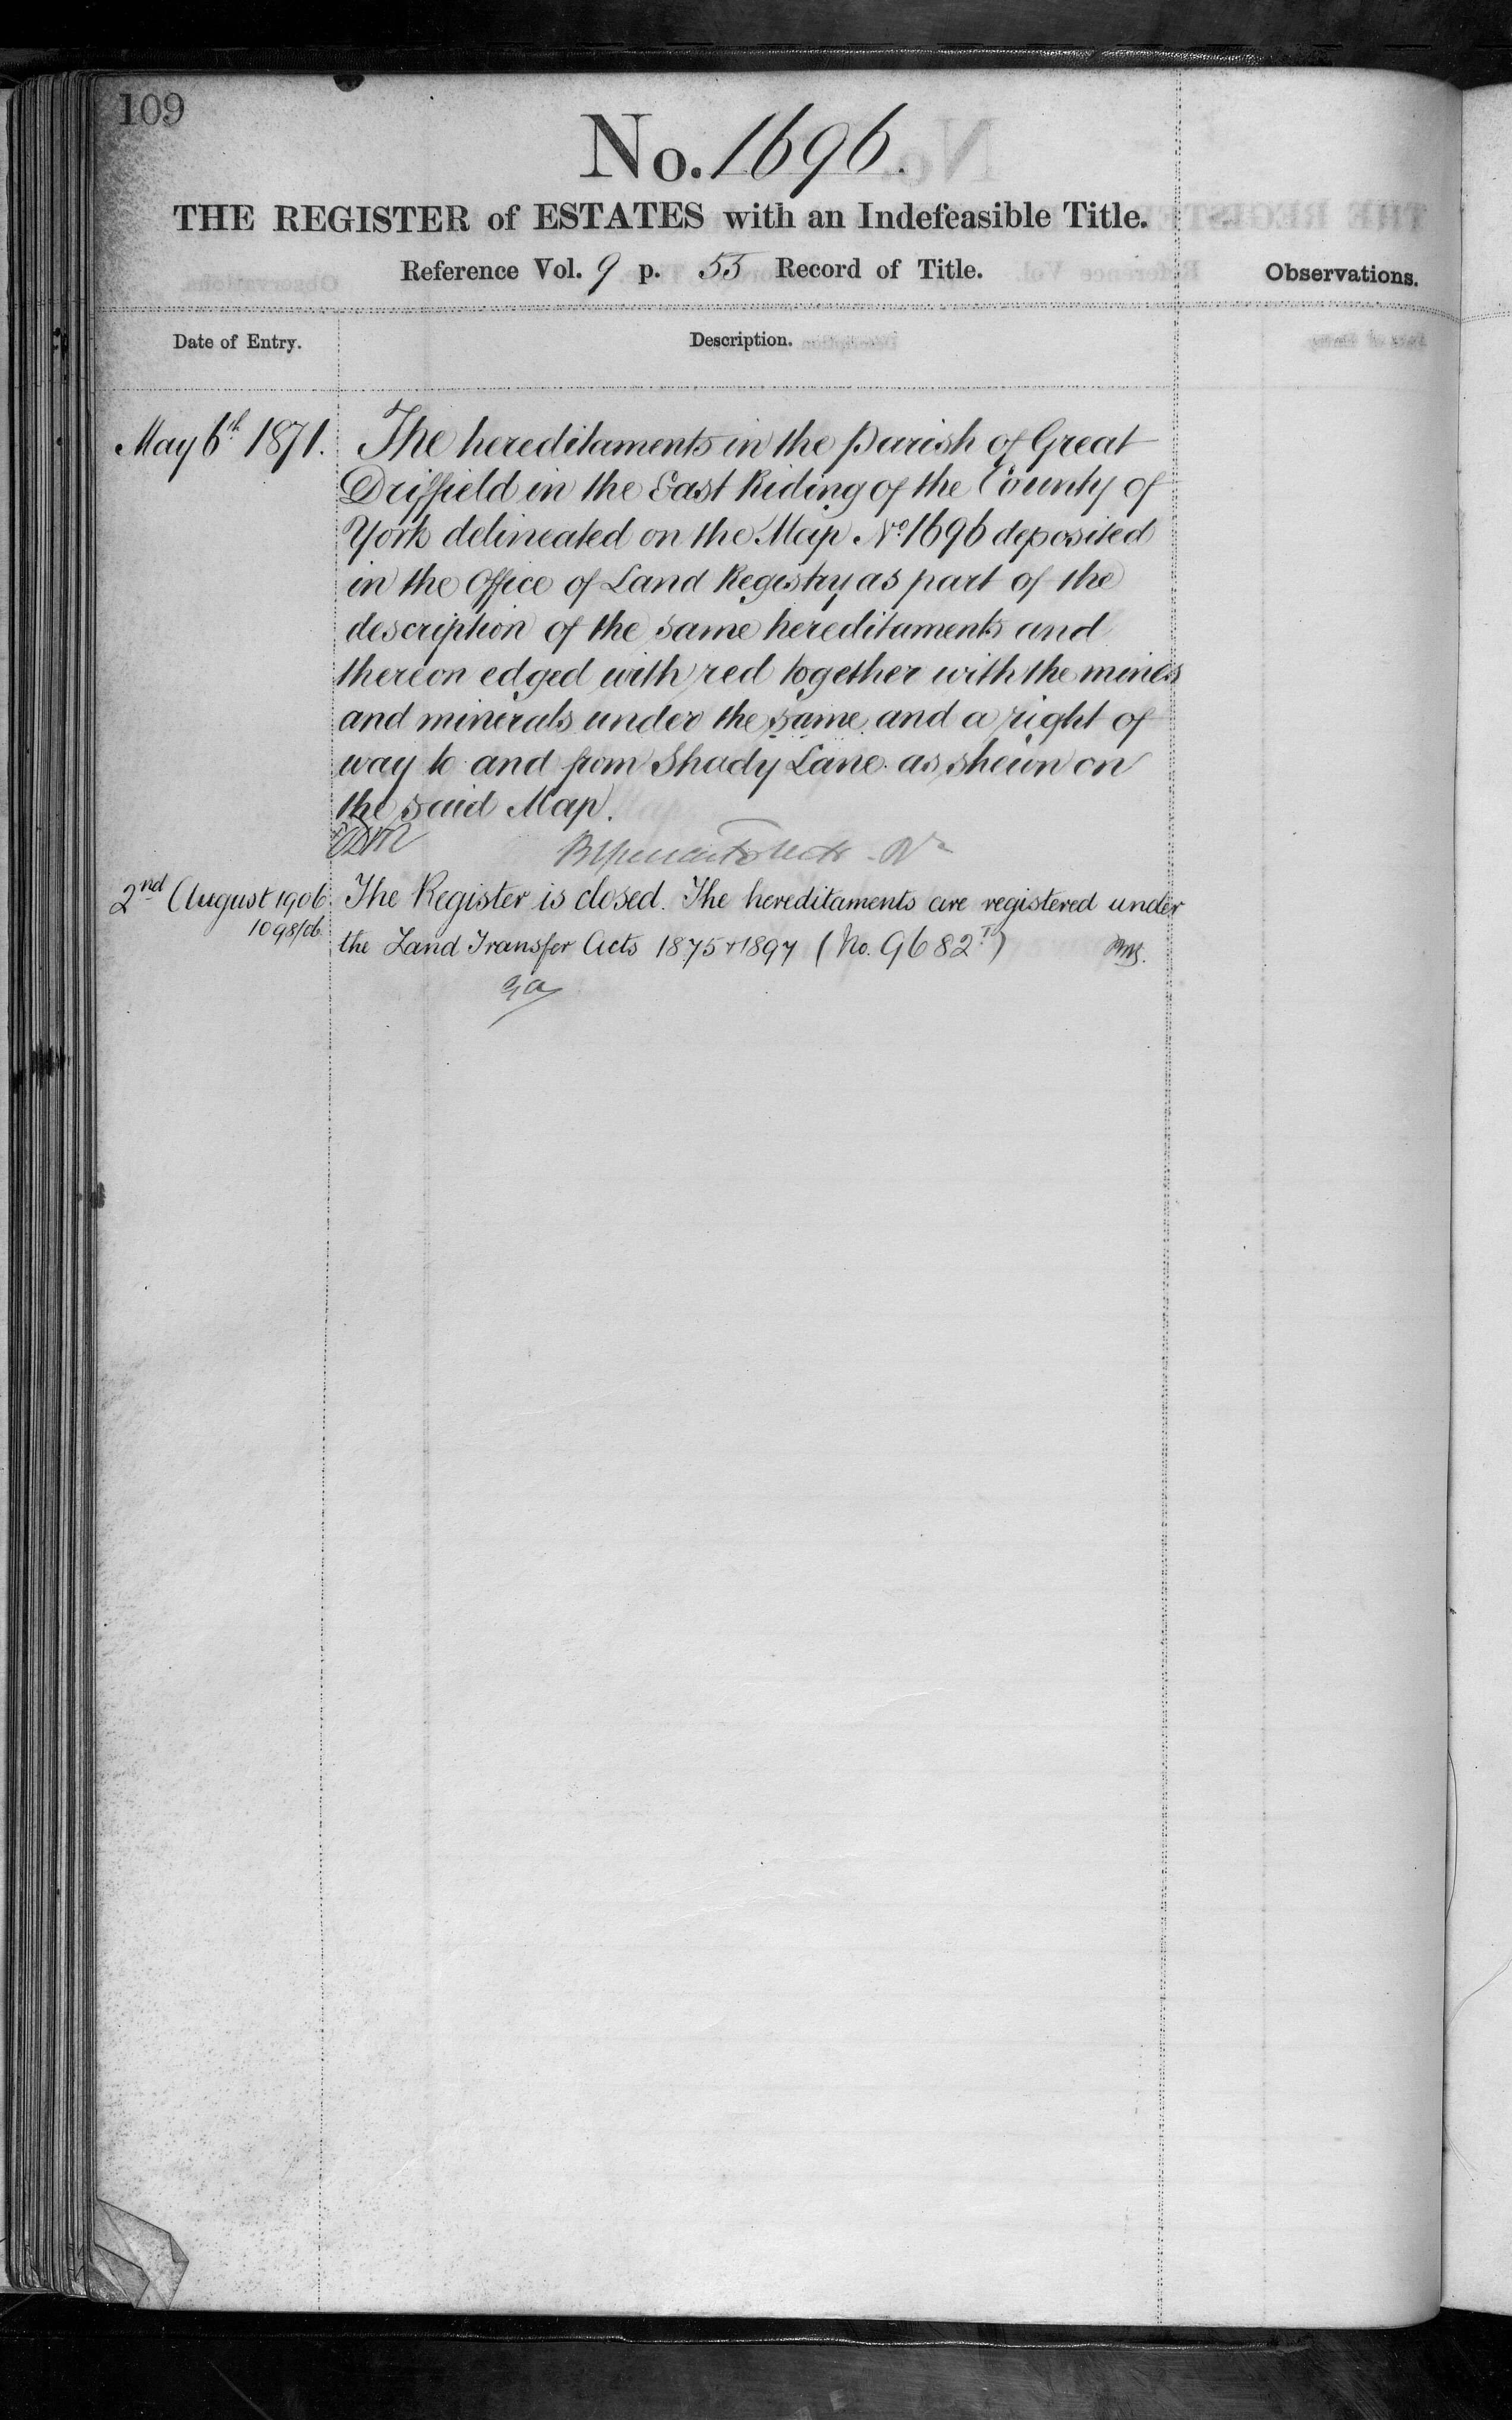 109
No. 1696.
THE REGISTER of ESTATES with an Indefeasible Title.
Reference Vol. 9 p. 55 Record of Title.
Observations.
Date of Entry.
Description.
May 6th 1871. The hereditaments in the Parish of Great
Driffield in the East Riding of the County of
York delineated on the Map No. 1696 deposited
in the Office of Land Registry as part of the
description of the same hereditaments and
thereon edged with red together with the mines
and minerals under the same and a right of
way to and from Shady Lane as shewn on
the said Map.
2nd August 1906. The Register is closed. The hereditaments are registered under
1098/06 the Land Transfer Acts 1875 & 1897 (No. 9682)